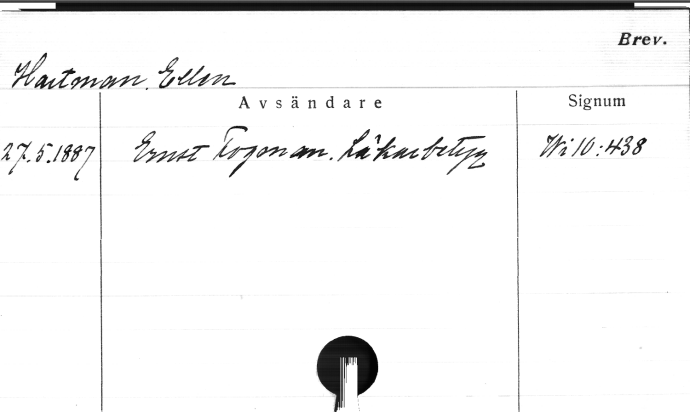 Brev.
Hartman, Ellen
Avsändare
Signum
27.5.1887 Ernst Fogman. Läkarbetyg Wi 10:438